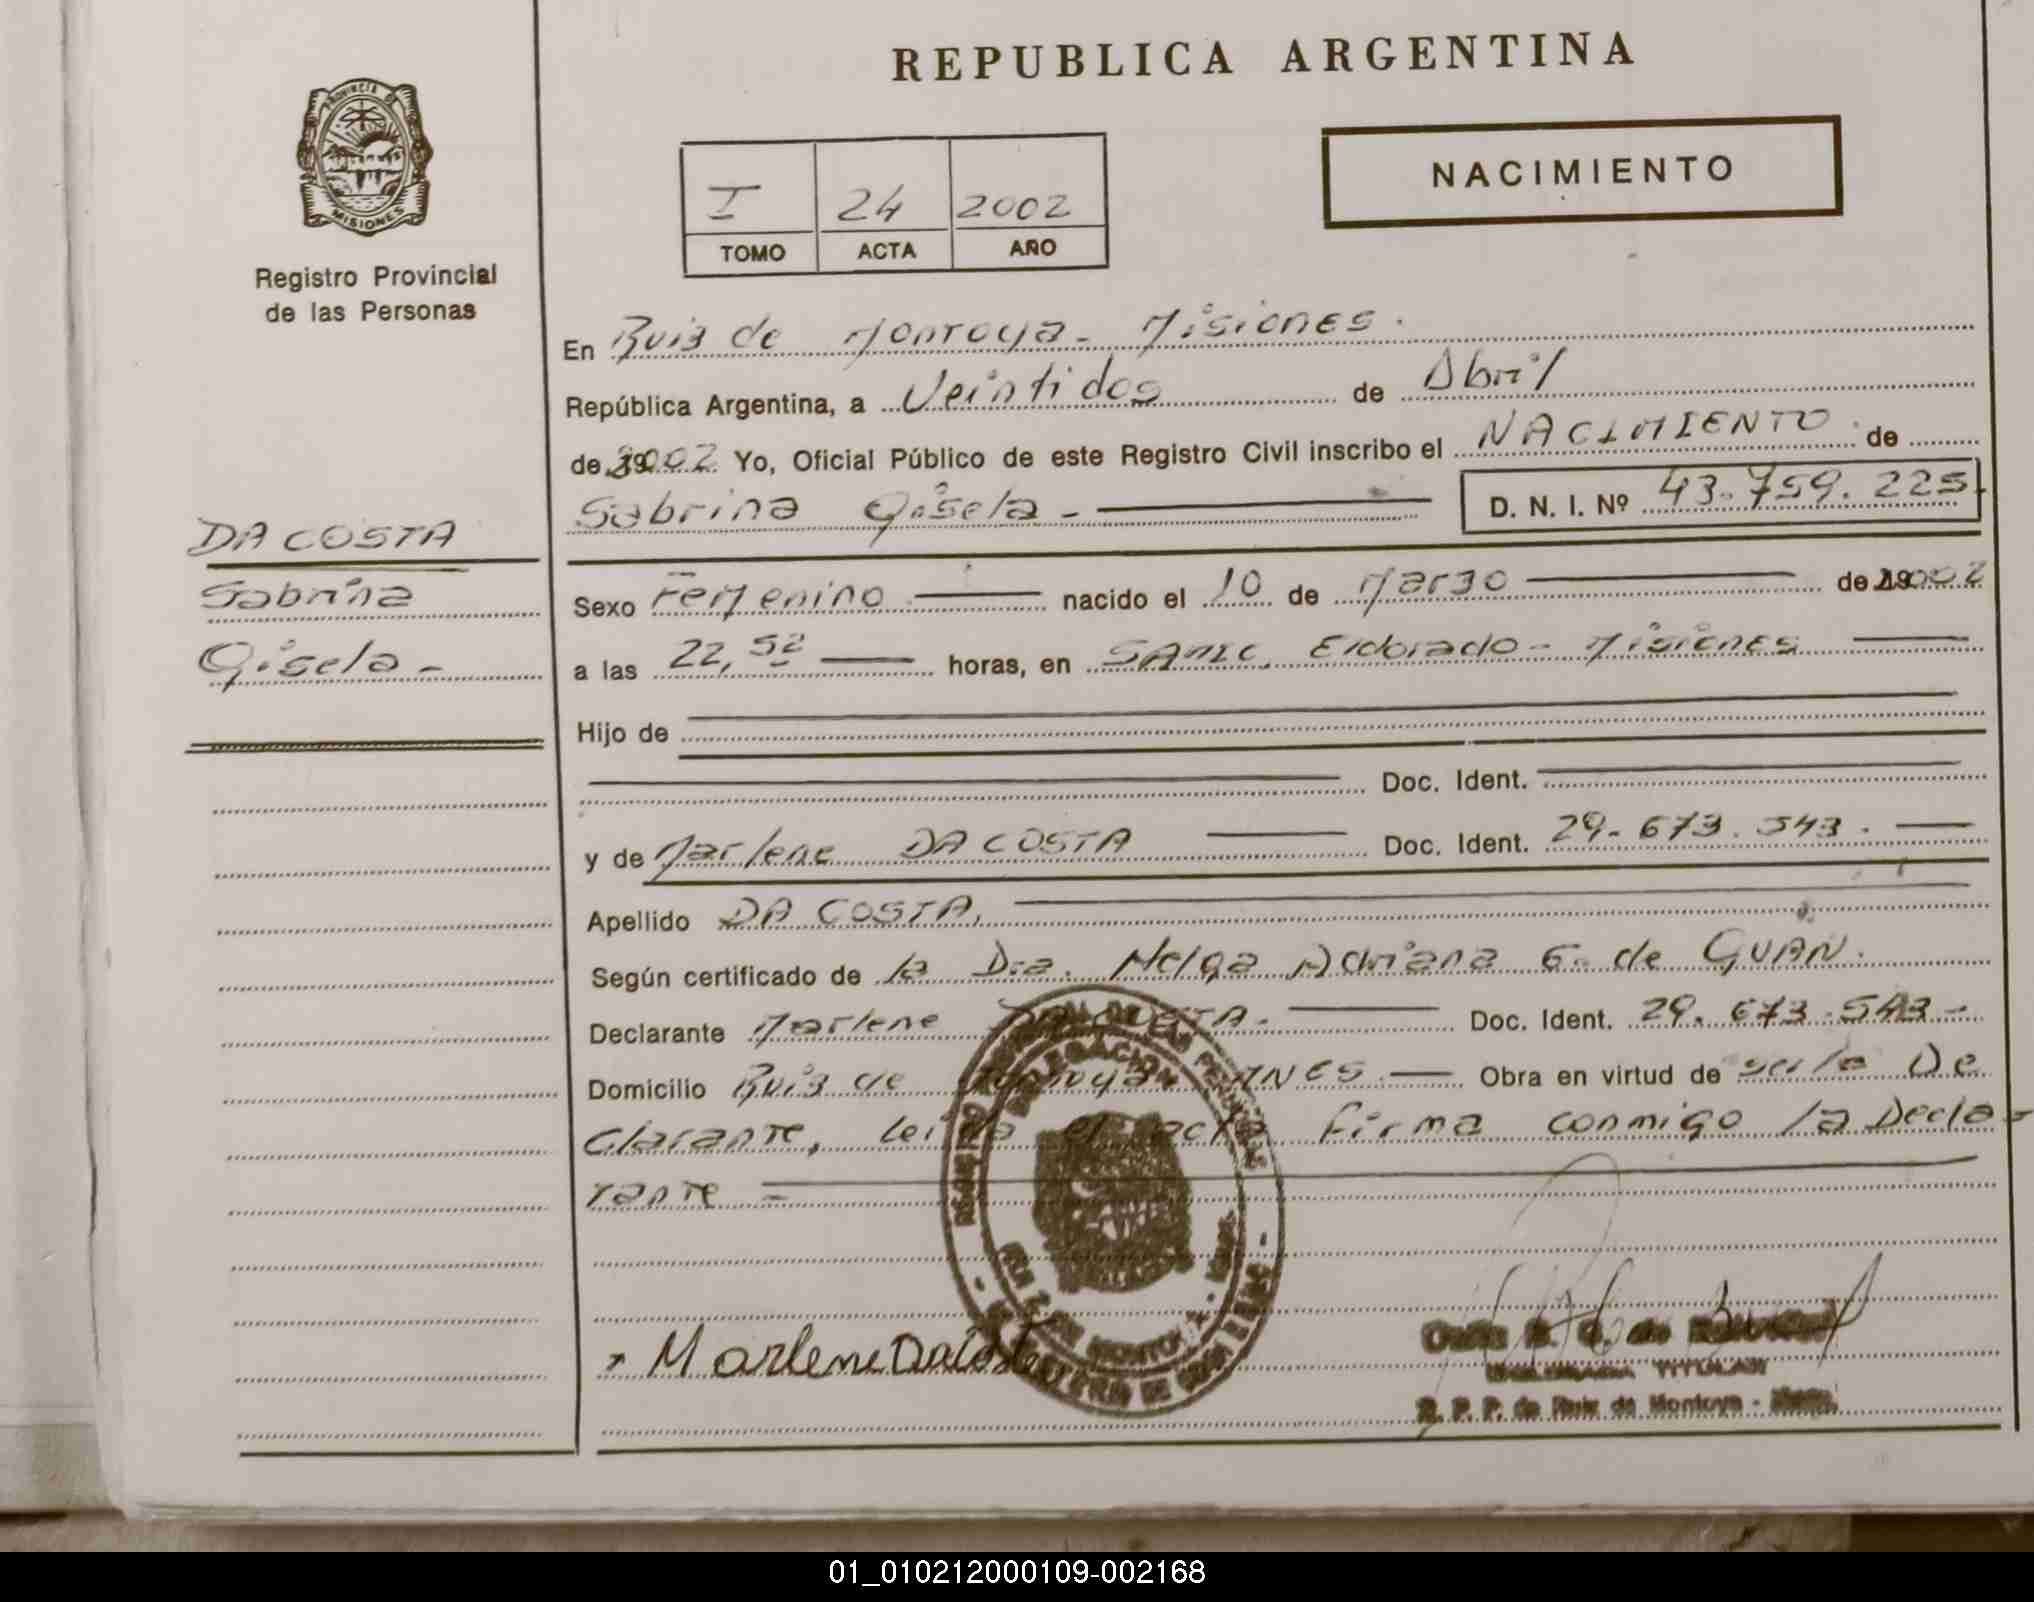 REPUBLICA ARGENTINA
PROVINCIA DE
MISIONES
Registro Provincial
de las Personas
NACIMIENTO
I 24 2002
TOMO ACTA AÑO
En Ruiz de Montoya - Misiones.
República Argentina, a Veintidos de Abril
de 2002 Yo, Oficial Público de este Registro Civil inscribo el NACIMIENTO de
Sabrina Gisela - D. N. I. Nº 43.759.225
DA COSTA
Sabrina
Gisela -
Sexo Femenino nacido el 10 de Marzo de 2002
a las 22,52 horas, en SAMIC. Eldorado - Misiones
Hijo de
Doc. Ident.
y de Marlene DA COSTA Doc. Ident. 29.673.543.
Apellido DA COSTA,
Según certificado de la Dra. Helga Adriana G. de GUAN.
Declarante Marlene DA COSTA - Doc. Ident. 29.673.543 -
Domicilio Ruiz de Montoya MNES. Obra en virtud de ser la De
clarante, leída el acta firma conmigo la Decla-
rante =
Marlene Dacosta
TITULAR
R. P. P. de Ruiz de Montoya - Mnes.
01_010212000109-002168